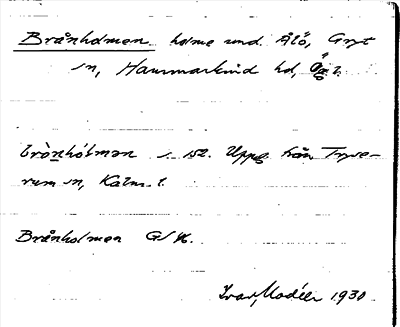 Brånholmen. holme und. Ålö, Gryt
sn, Hammarkind hd, Ög l.
bròn̲hólmən s. 152. Uppg. från Tryse-
rum sn, Kalm. l.
Brånholmen G/K.
Ivar Modéer 1930